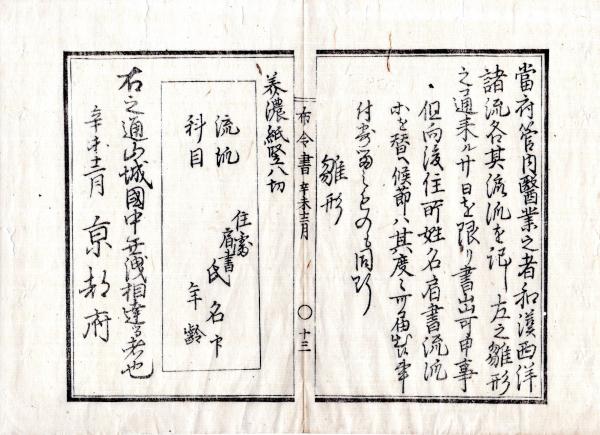 當府管内醫業之者和漢西洋
諸流各其流派を記し左之雛形
之通来ル廿日を限り書出可申事
但向後住所姓名肩書流派
等を替へ候節ハ其度々可届出事
雛形
布令書 辛未十二月 〇十三
美濃紙竪八切
流派
科目
住所
肩書
氏名印
年齢
右之通山城國中無洩相達る者也
辛未十二月 京都府